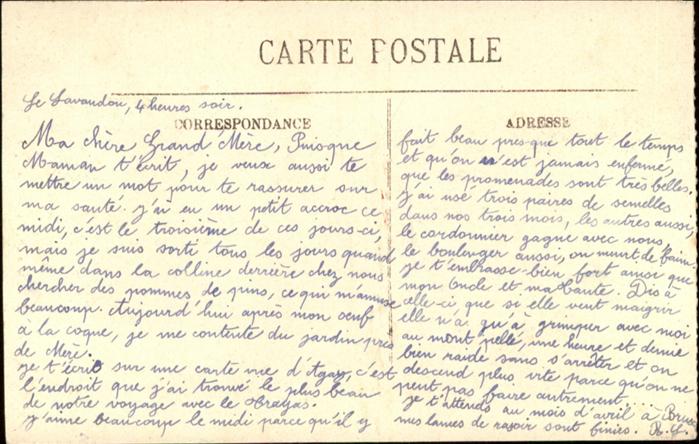 CARTE POSTALE
Le Lavandou, 4 heures soir.
CORRESPONDANCE
Ma chère Grand Mère, Puisque
Maman t'écrit, je veux aussi te
mettre un mot pour te rassurer sur
ma santé. j'ai eu un petit accroc ce
midi, c'est le troisième de ces jours-ci,
mais je suis sorti tous les jours quand
même dans la colline derrière chez nous
chercher des pommes de pins, ce qui m'amuse
beaucoup. Aujourd'hui après mon oeuf
à la coque, je me contente du jardin près
de Mère.
je t'écris sur une carte vue d'Agay, c'est
l'endroit que j'ai trouvé le plus beau
de notre voyage avec le
j'aime beaucoup le midi parce qu'il y
ADRESSE
fait beau presque tout le temps
et qu'on n'est jamais enfermé,
que les promenades sont très belles.
j'ai usé trois paires de semelles
dans nos trois mois, les autres aussi,
le cordonnier gagne avec nous
le boulenger aussi, on meurt de faim.
je t'embrasse bien fort ainsi que
mon Oncle et ma tante. Dis à
celle-ci que si elle veut maigrir
elle n'a qu'à grimper avec moi
au mont pellé, une heure et demie
bien raide sans s'arrêter et on
descend plus vite parce qu'on ne
peut pas faire autrement...
je t'attends au mois d'avril à
mes lames de rasoir sont finies.